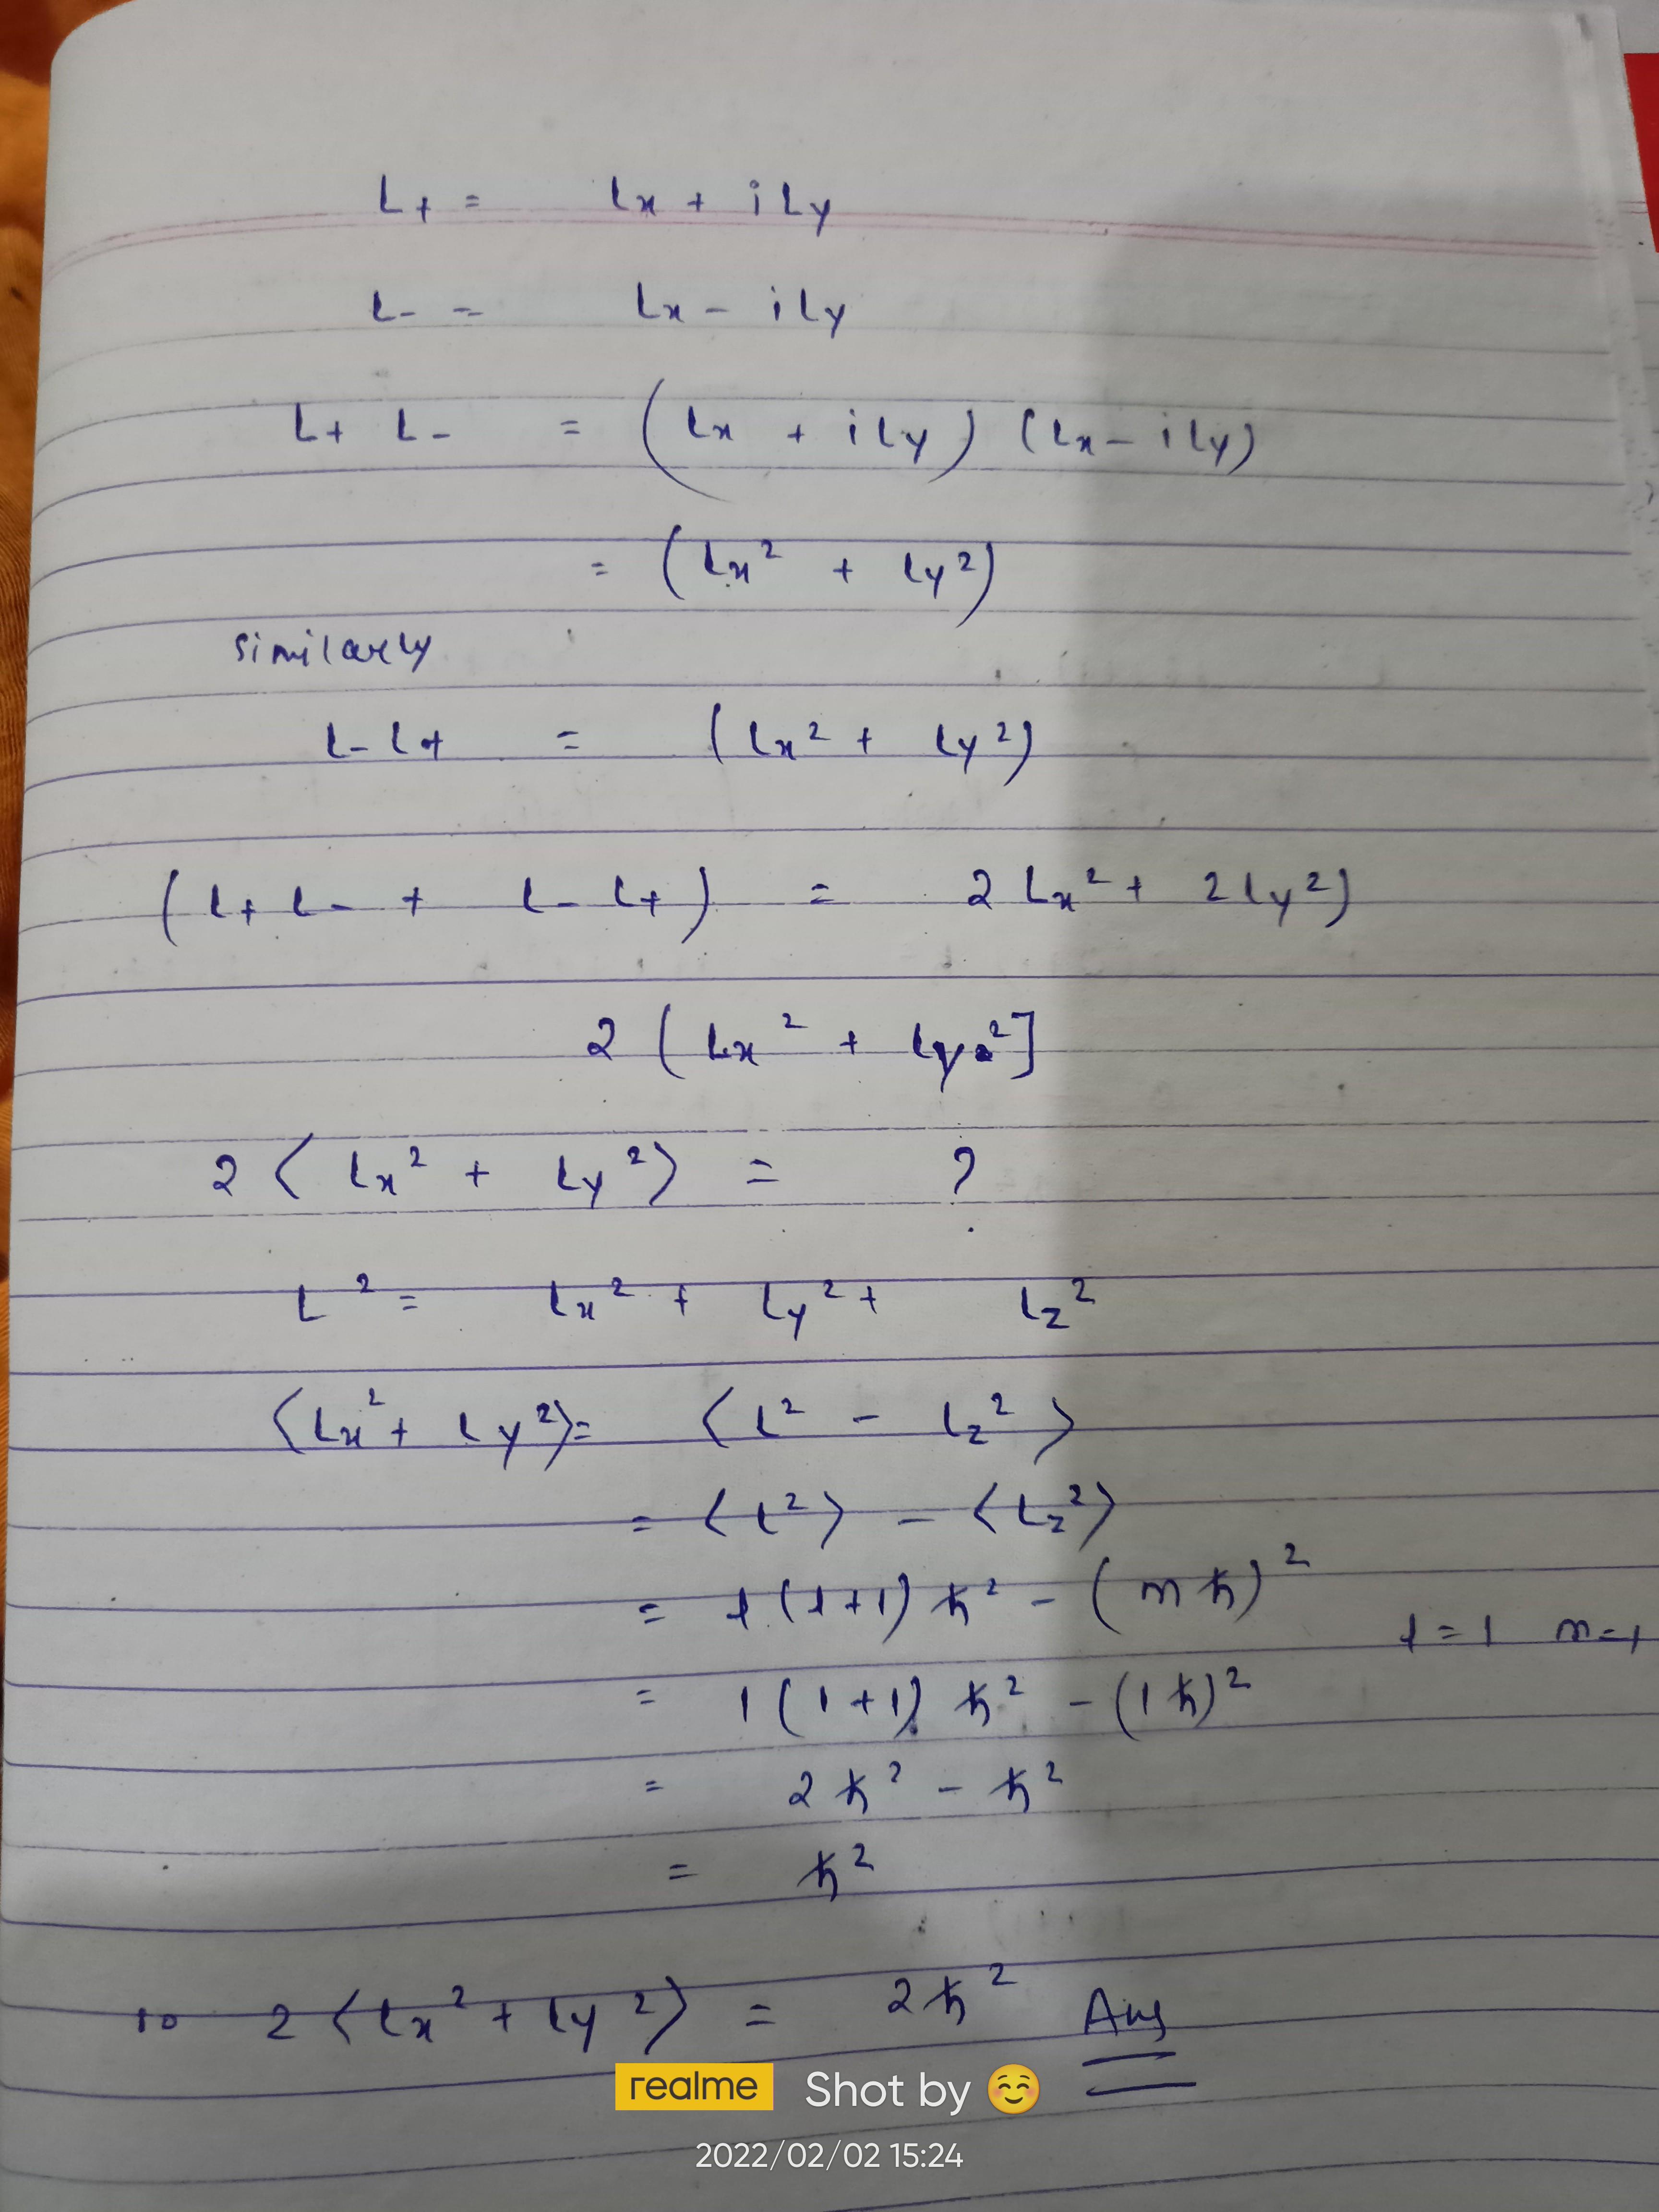 L+ = Lx + iLy
L- = Lx - iLy
L+ L- = (Lx + iLy) (Lx - iLy)
= (Lx² + Ly²)
similarly
L- L+ = (Lx² + Ly²)
(L+ L- + L- L+) = 2Lx² + 2Ly²)
2 (Lx² + Ly²]
2 ⟨Lx² + Ly²⟩ = ?
L² = Lx² + Ly² + Lz²
⟨Lx² + Ly²⟩ = ⟨L² - Lz²⟩
= ⟨L²⟩ - ⟨Lz²⟩
= l(l+1) ħ² - (mħ)²
l = 1 m = 1
= 1(1+1) ħ² - (1ħ)²
= 2ħ² - ħ²
= ħ²
2 ⟨Lx² + Ly²⟩ = 2ħ² Ans
realme Shot by 😊
2022/02/02 15:24